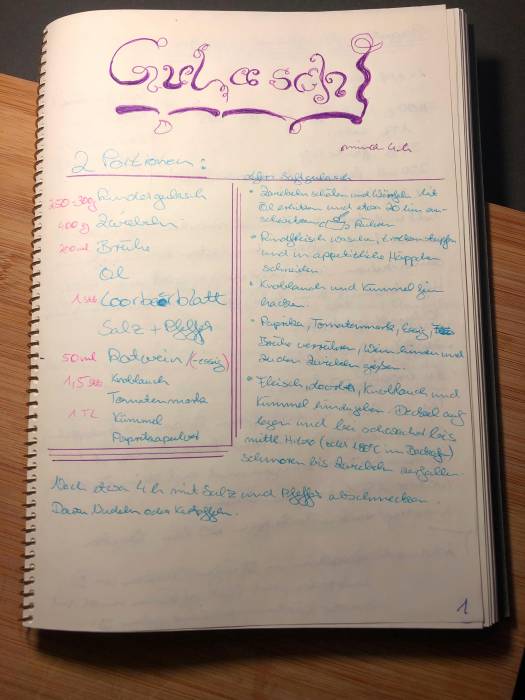 Gulasch
2 Portionen:
250-300g Rindergulasch
400g Zwiebeln
200ml Brühe
Öl
1 Stk Loorbeerblatt
Salz + Pfeffer
50ml Rotwein (-essig)
1,5 Stk Knoblauch
Tomatenmark
1 TL Kümmel
Paprikapulver
• Zwiebeln schälen und Würfeln. Mit
Öl erhitzen und etwa 20 min an-
schwitzen. Rühren
• Rindfleisch waschen, trockentupfen
und in appetitliche Häppchen
schneiden.
• Knoblauch und Kümmel fein
hacken.
• Paprika, Tomatenmark, Essig,
Brühe verrühren, Wein und
zu den Zwiebeln gießen.
• Fleisch, Knoblauch und
Kümmel hinzugeben. Deckel auf
legen und bei schwacher bis
mittl. Hitze (oder 180°C im Backofen)
schmoren bis Zwiebeln zerfallen.
Nach etwa 4h mit Salz und Pfeffer abschmecken.
Dazu Nudeln oder Kartoffeln.
1